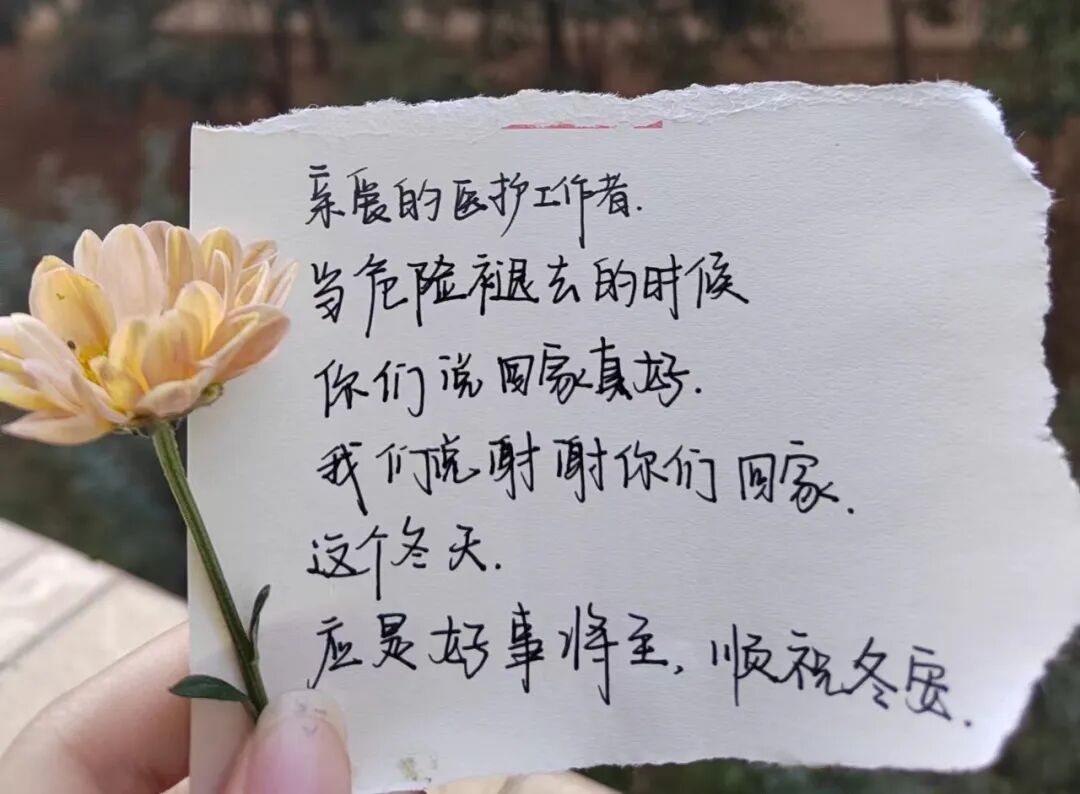 亲爱的医护工作者.
当危险褪去的时候
你们说回家真好.
我们说谢谢你们回家.
这个冬天.
应是好事将至,顺祝冬安.